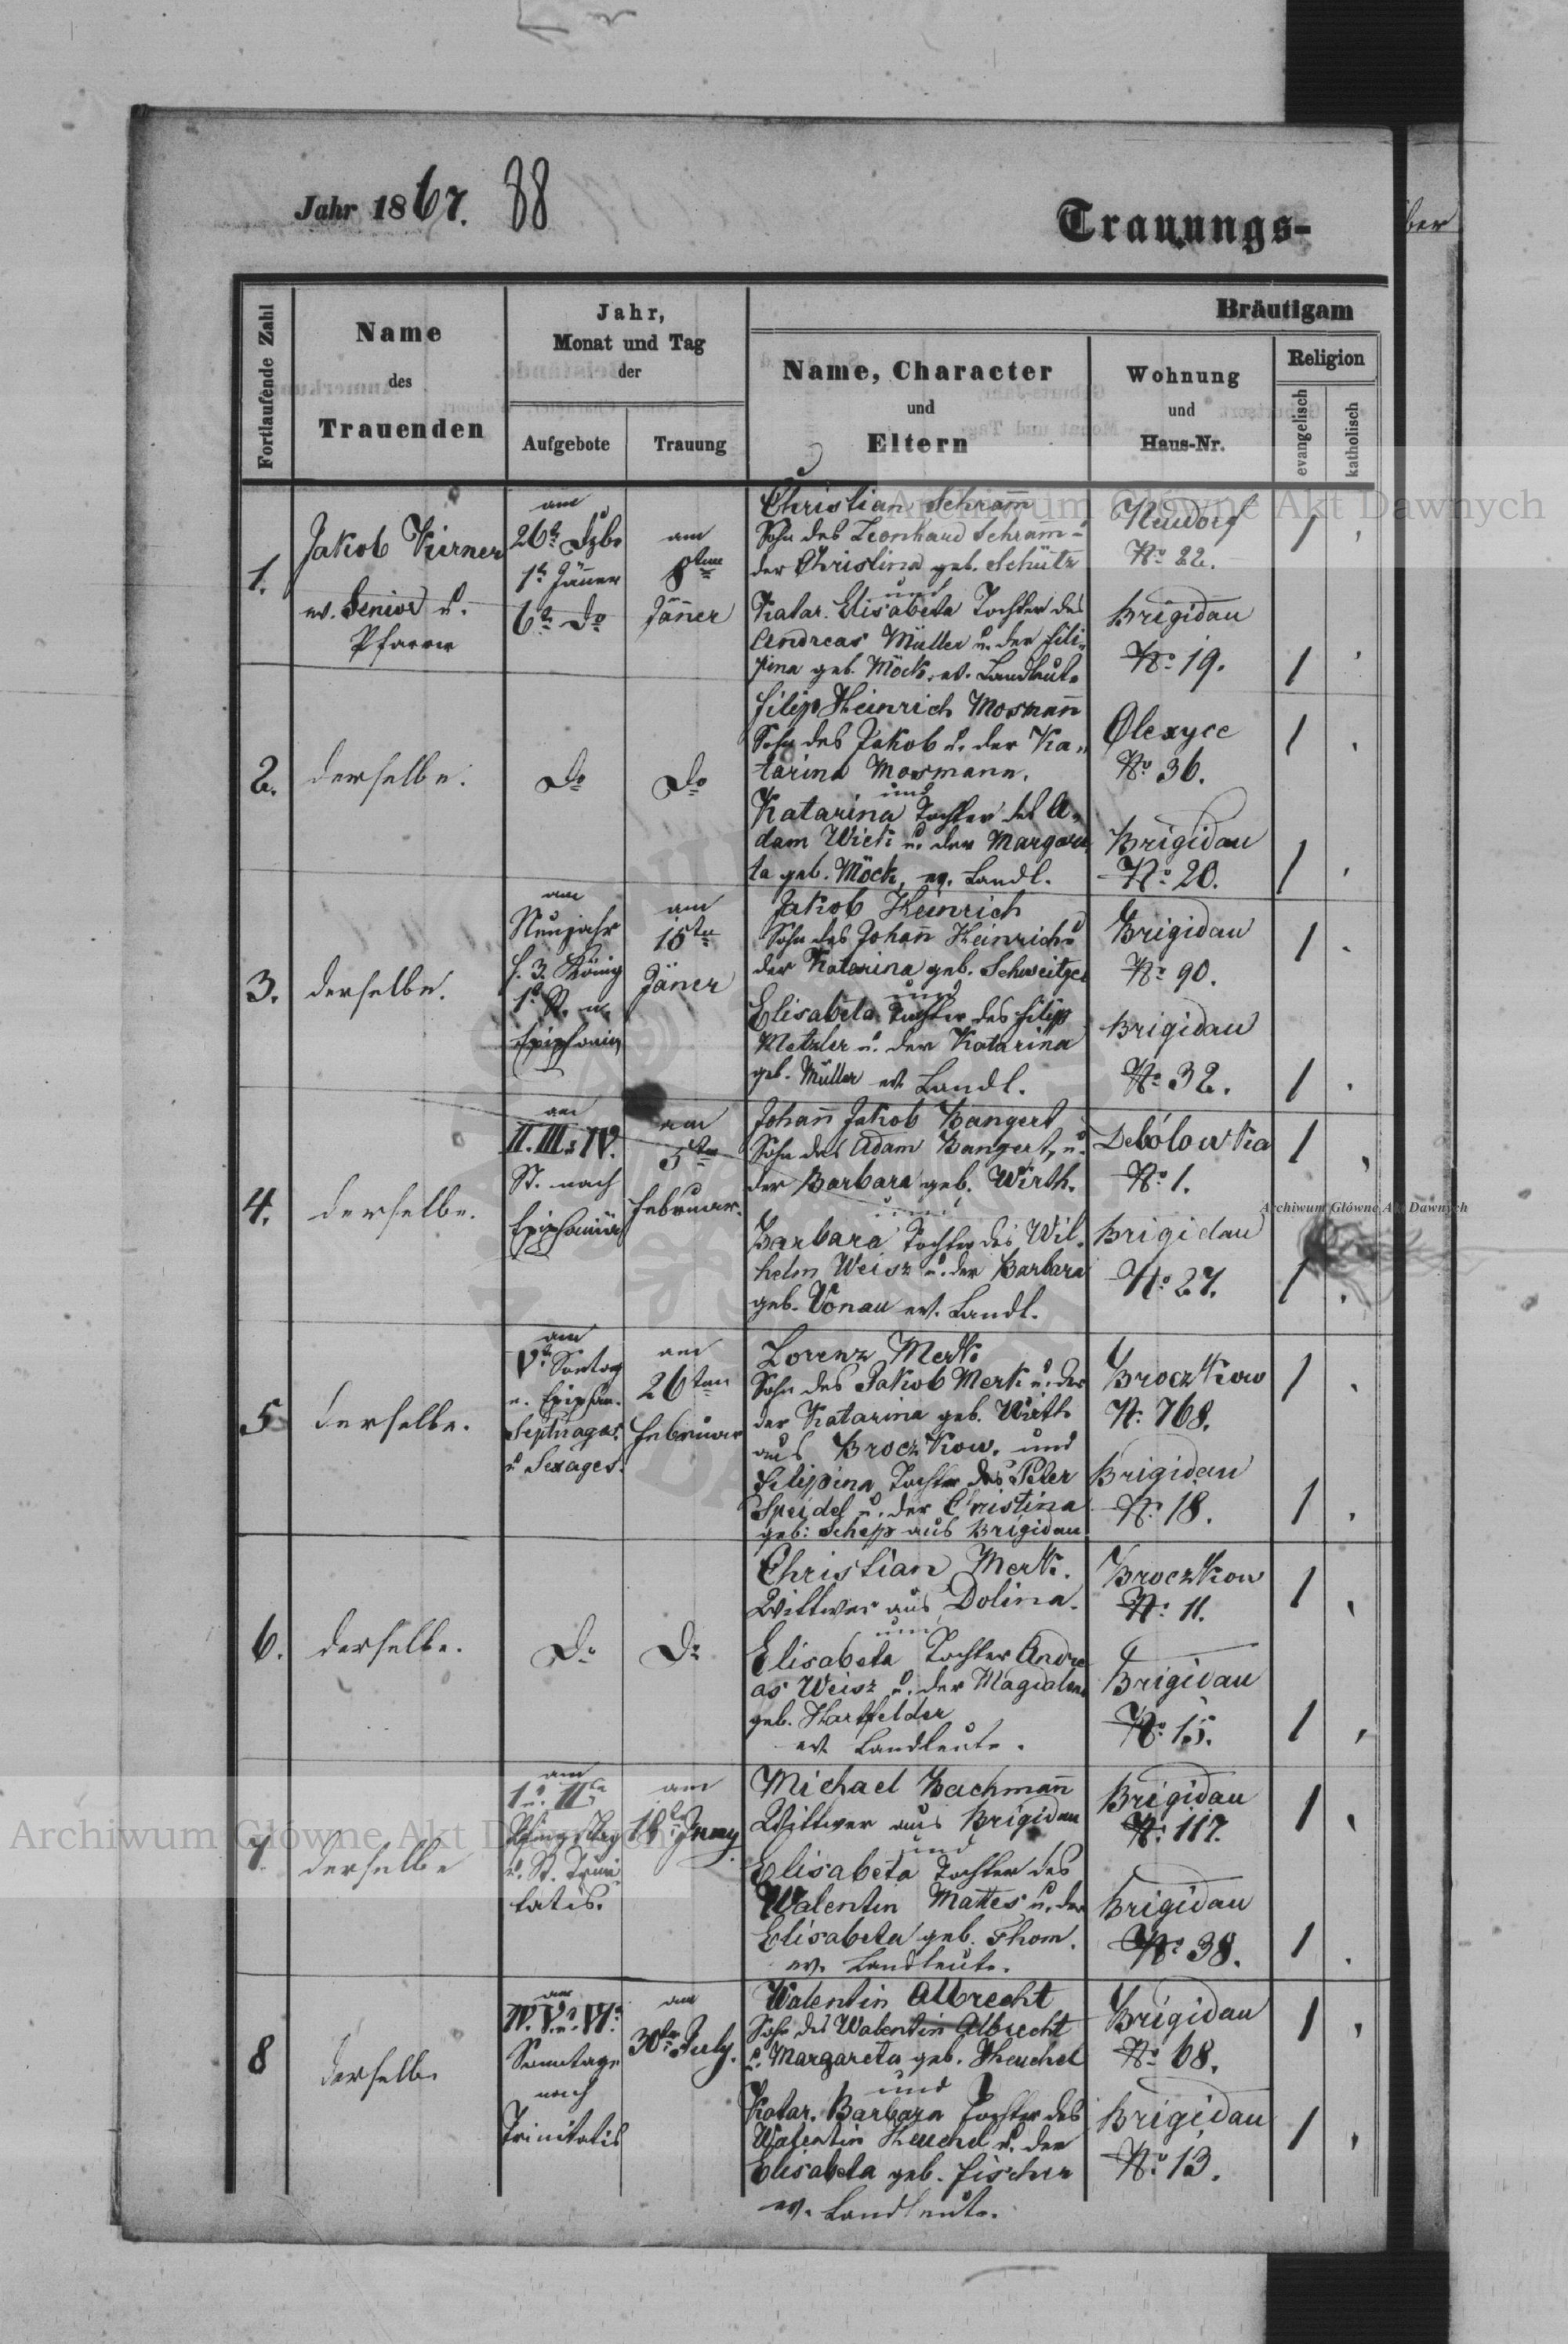 Jahr 1867. 88
Trauungs-
Fortlaufende Zahl
Name
des
Trauenden
Jahr,
Monat und Tag
der
Aufgebote
Trauung
Bräutigam
Name, Character
und
Eltern
Wohnung
und
Haus-Nr.
Religion
evangelisch
katholisch
1.
Jakob Kirner
ev. Senior u.
Pfarrer
am
26t Dzbr
1t Jänner
6t Do
am
8ten
Jäner
Christian Schram̄
Sohn des Leonhard Schram̄ u.
der Christina geb. Schütz
und
Katar. Elisabeta Tochter des
Andreas Müller u. der Fili-
pina geb. Möck, ev. Landleute
Neudorf
No 22.
1
Brigidau
No 19.
1
2.
derselbe.
Do
Do
Filip Heinrich Mosman̄
Sohn des Jakob u. der Ka-
tarina Mosmann.
und
Katarina Tochter des A-
dam Wick u. der Margare
ta geb. Möck, ev. Landl.
Olexyce
No 36.
1
Brigidau
No 20.
1
3.
derselbe.
am
Neujahr
h. 3. König
1t St. n.
Epiphania
am
15ten
Jäner
Jakob Heinrich
Sohn des Johan̄ Heinrich u
der Katarina geb. Schweitzer
und
Elisabeta Tochter des Filip
Metzler u. der Katarina
geb. Müller ev. Landl.
Brigidau
No 90.
1
Brigidau
No 32.
1
4.
derselbe.
am
II. III. u IV.
St. nach
Epiphania
am
5ten
Februar.
Johan̄ Jakob Bangert
Sohn des Adam Bangert, u.
der Barbara geb. Wirth.
und
Barbara Tochter des Wil-
helm Weisz u. der Barbara
geb. Vonau ev. Landl.
Debólowka
No 1.
1
Brigidau
No 27.
1
5
derselbe.
am
Vt Sontag
n. Epiphan.
Septuages.
u Sexages.
am
26ten
Februar
Lorenz Merk
Sohn des Jakob Merk u. der
der Katarina geb. Wirth
aus Broczkow. und
Filippina Tochter des Peter
Speidel u. der Christina
geb: Schepp aus Brigidau
Broczkow
N. 768.
1
Brigidau
N. 18.
1
6.
derselbe.
Do
Do
Christian Merk.
Wittwer aus Dolina.
und
Elisabeta Tochter Andre
as Weisz u. der Magdalena
geb. Hartfelder
ev. Landleute.
Broczkow
No 11.
1
Brigidau
No 15.
1
7
derselbe
am
1 u. IIte
Pfingsttag
u. St. Trini
tatis.
am
18t Juny
Michael Bachman̄
Wittwer aus Brigidau
und
Elisabeta Tochter des
Walentin Mattes u. der
Elisabeta geb. Thom.
ev. Landleute.
Brigidau
No 117.
1
Brigidau
No 38.
1
8
derselbe
am
IV. V. u. VIt
Sonntage
nach
Trinitatis
am
30ten July.
Walentin Albrecht
Sohn des Walentin Albrecht
u. Margareta geb. Heuchel
und
Katar. Barbara Tochter des
Walentin Heuchel u. der
Elisabeta geb. Fischer
ev. Landleute.
Brigidau
No 68.
1
Brigidau
No 13.
1
Archiwum Główne Akt Dawnych
Archiwum Główne Akt Dawnych
Archiwum Główne Akt Dawnych